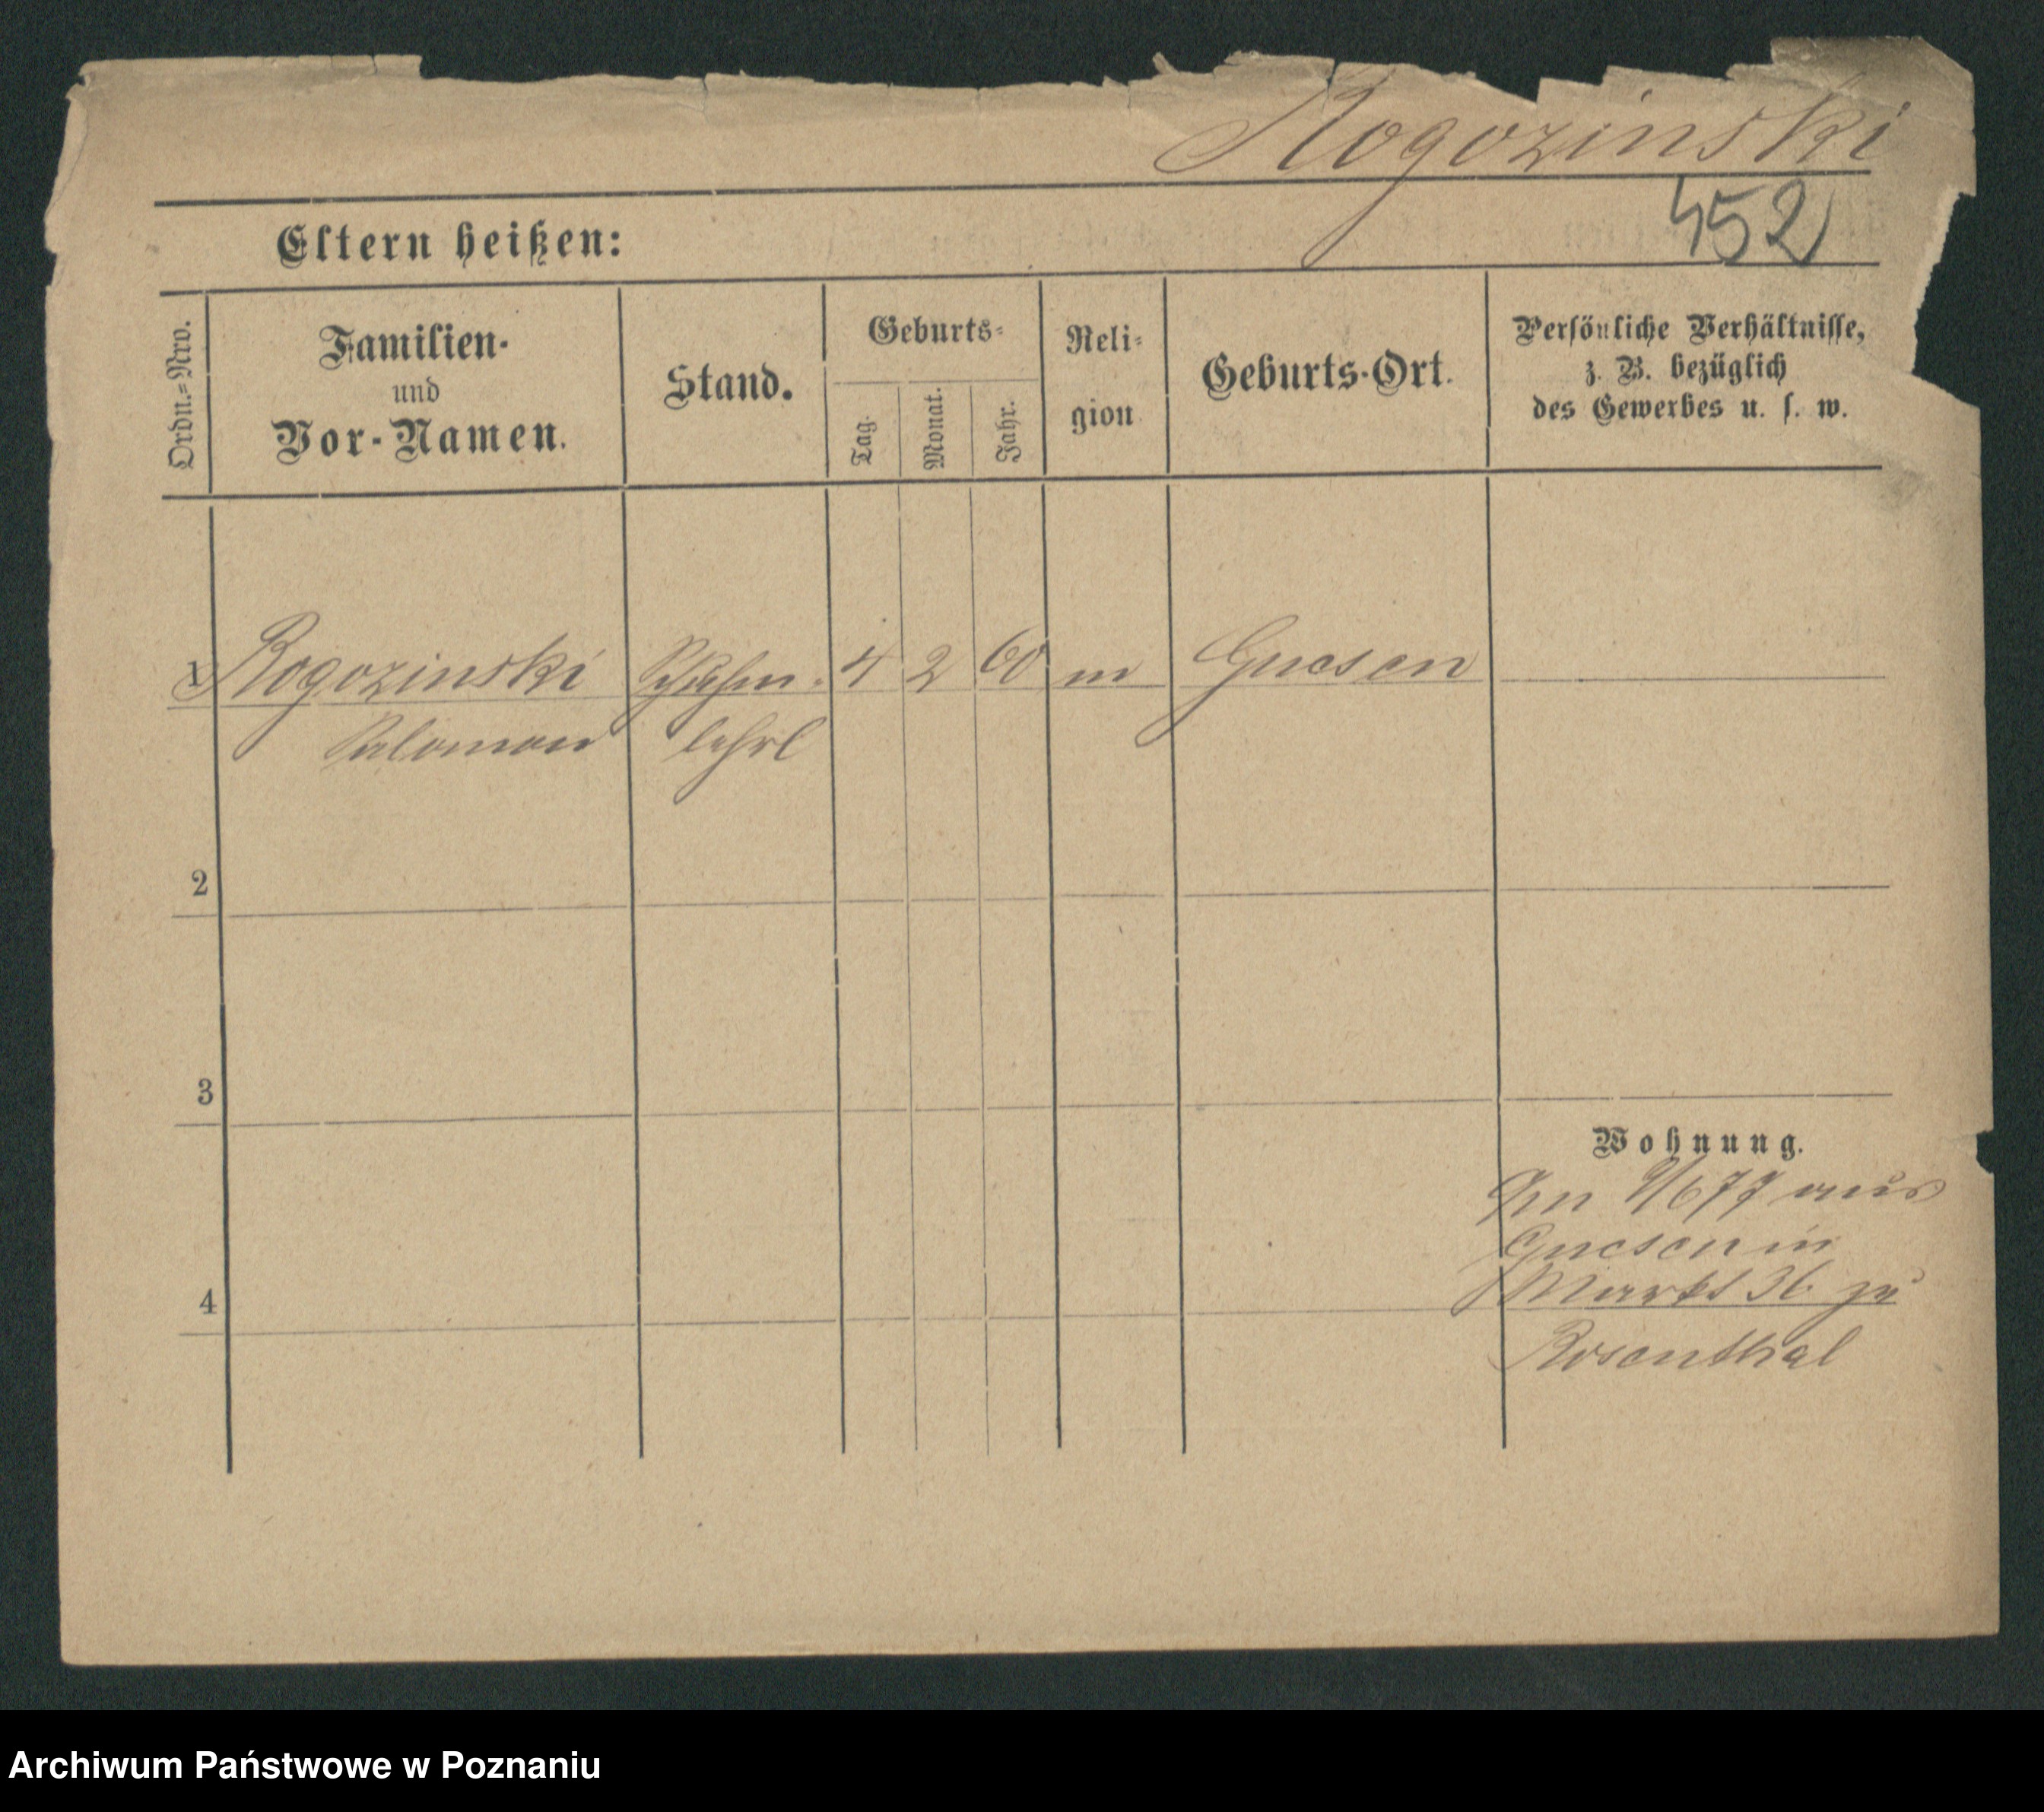 Rogozinski
452
Eltern heißen:
Ordn.=Nro.
Familien-
und
Vor-Namen.
Stand.
Geburts-
Tag.
Monat.
Jahr.
Reli-
gion
Geburts-Ort.
Persönliche Verhältnisse,
z. B. bezüglich
des Gewerbes u. s. w.
1 Rogozinski 4 2 60 m Gnesen
Salomon lehrl
2
3
Wohnung.
677 aus
Gnesen in
Markt 36 zu
4
Rosenthal
Archiwum Państwowe w Poznaniu